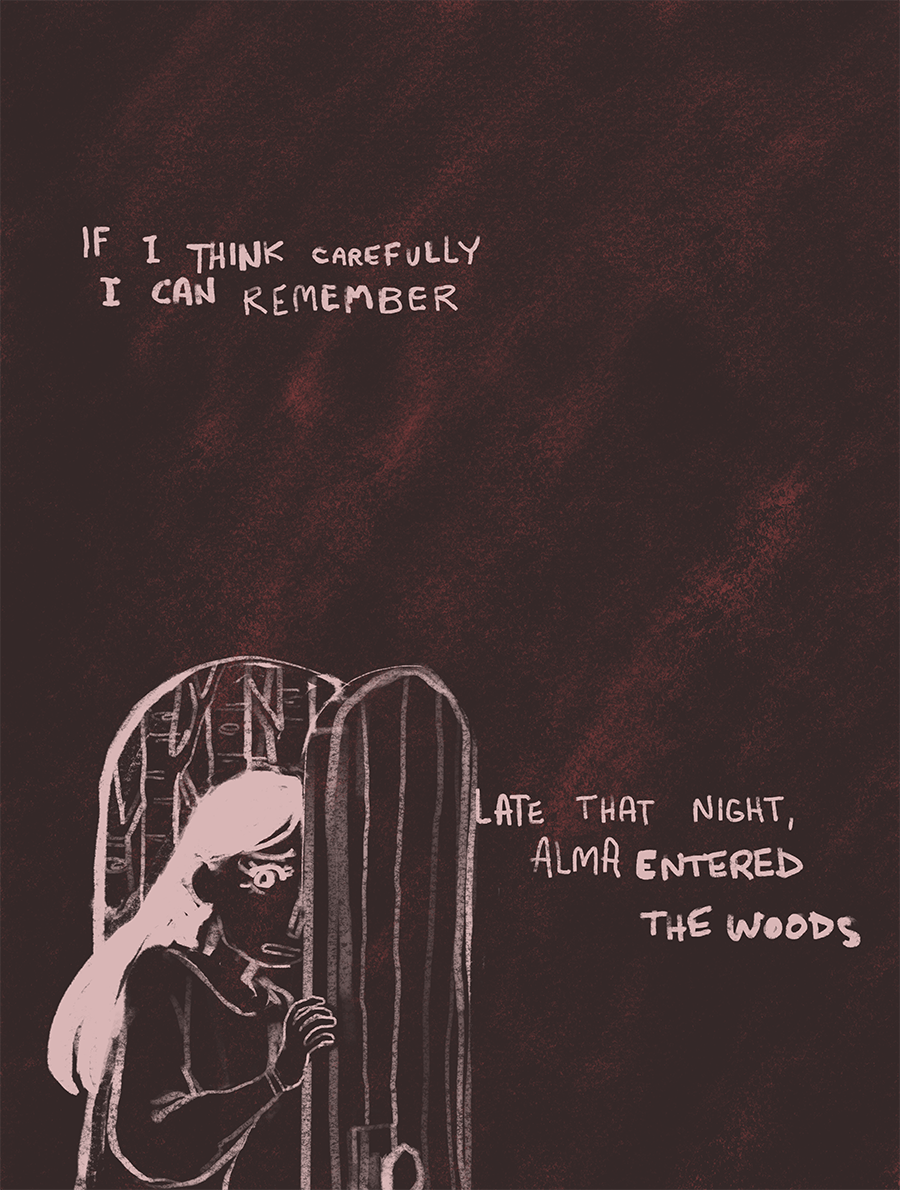 IF I THINK CAREFULLY
I CAN REMEMBER
LATE THAT NIGHT,
ALMA ENTERED
THE WOODS